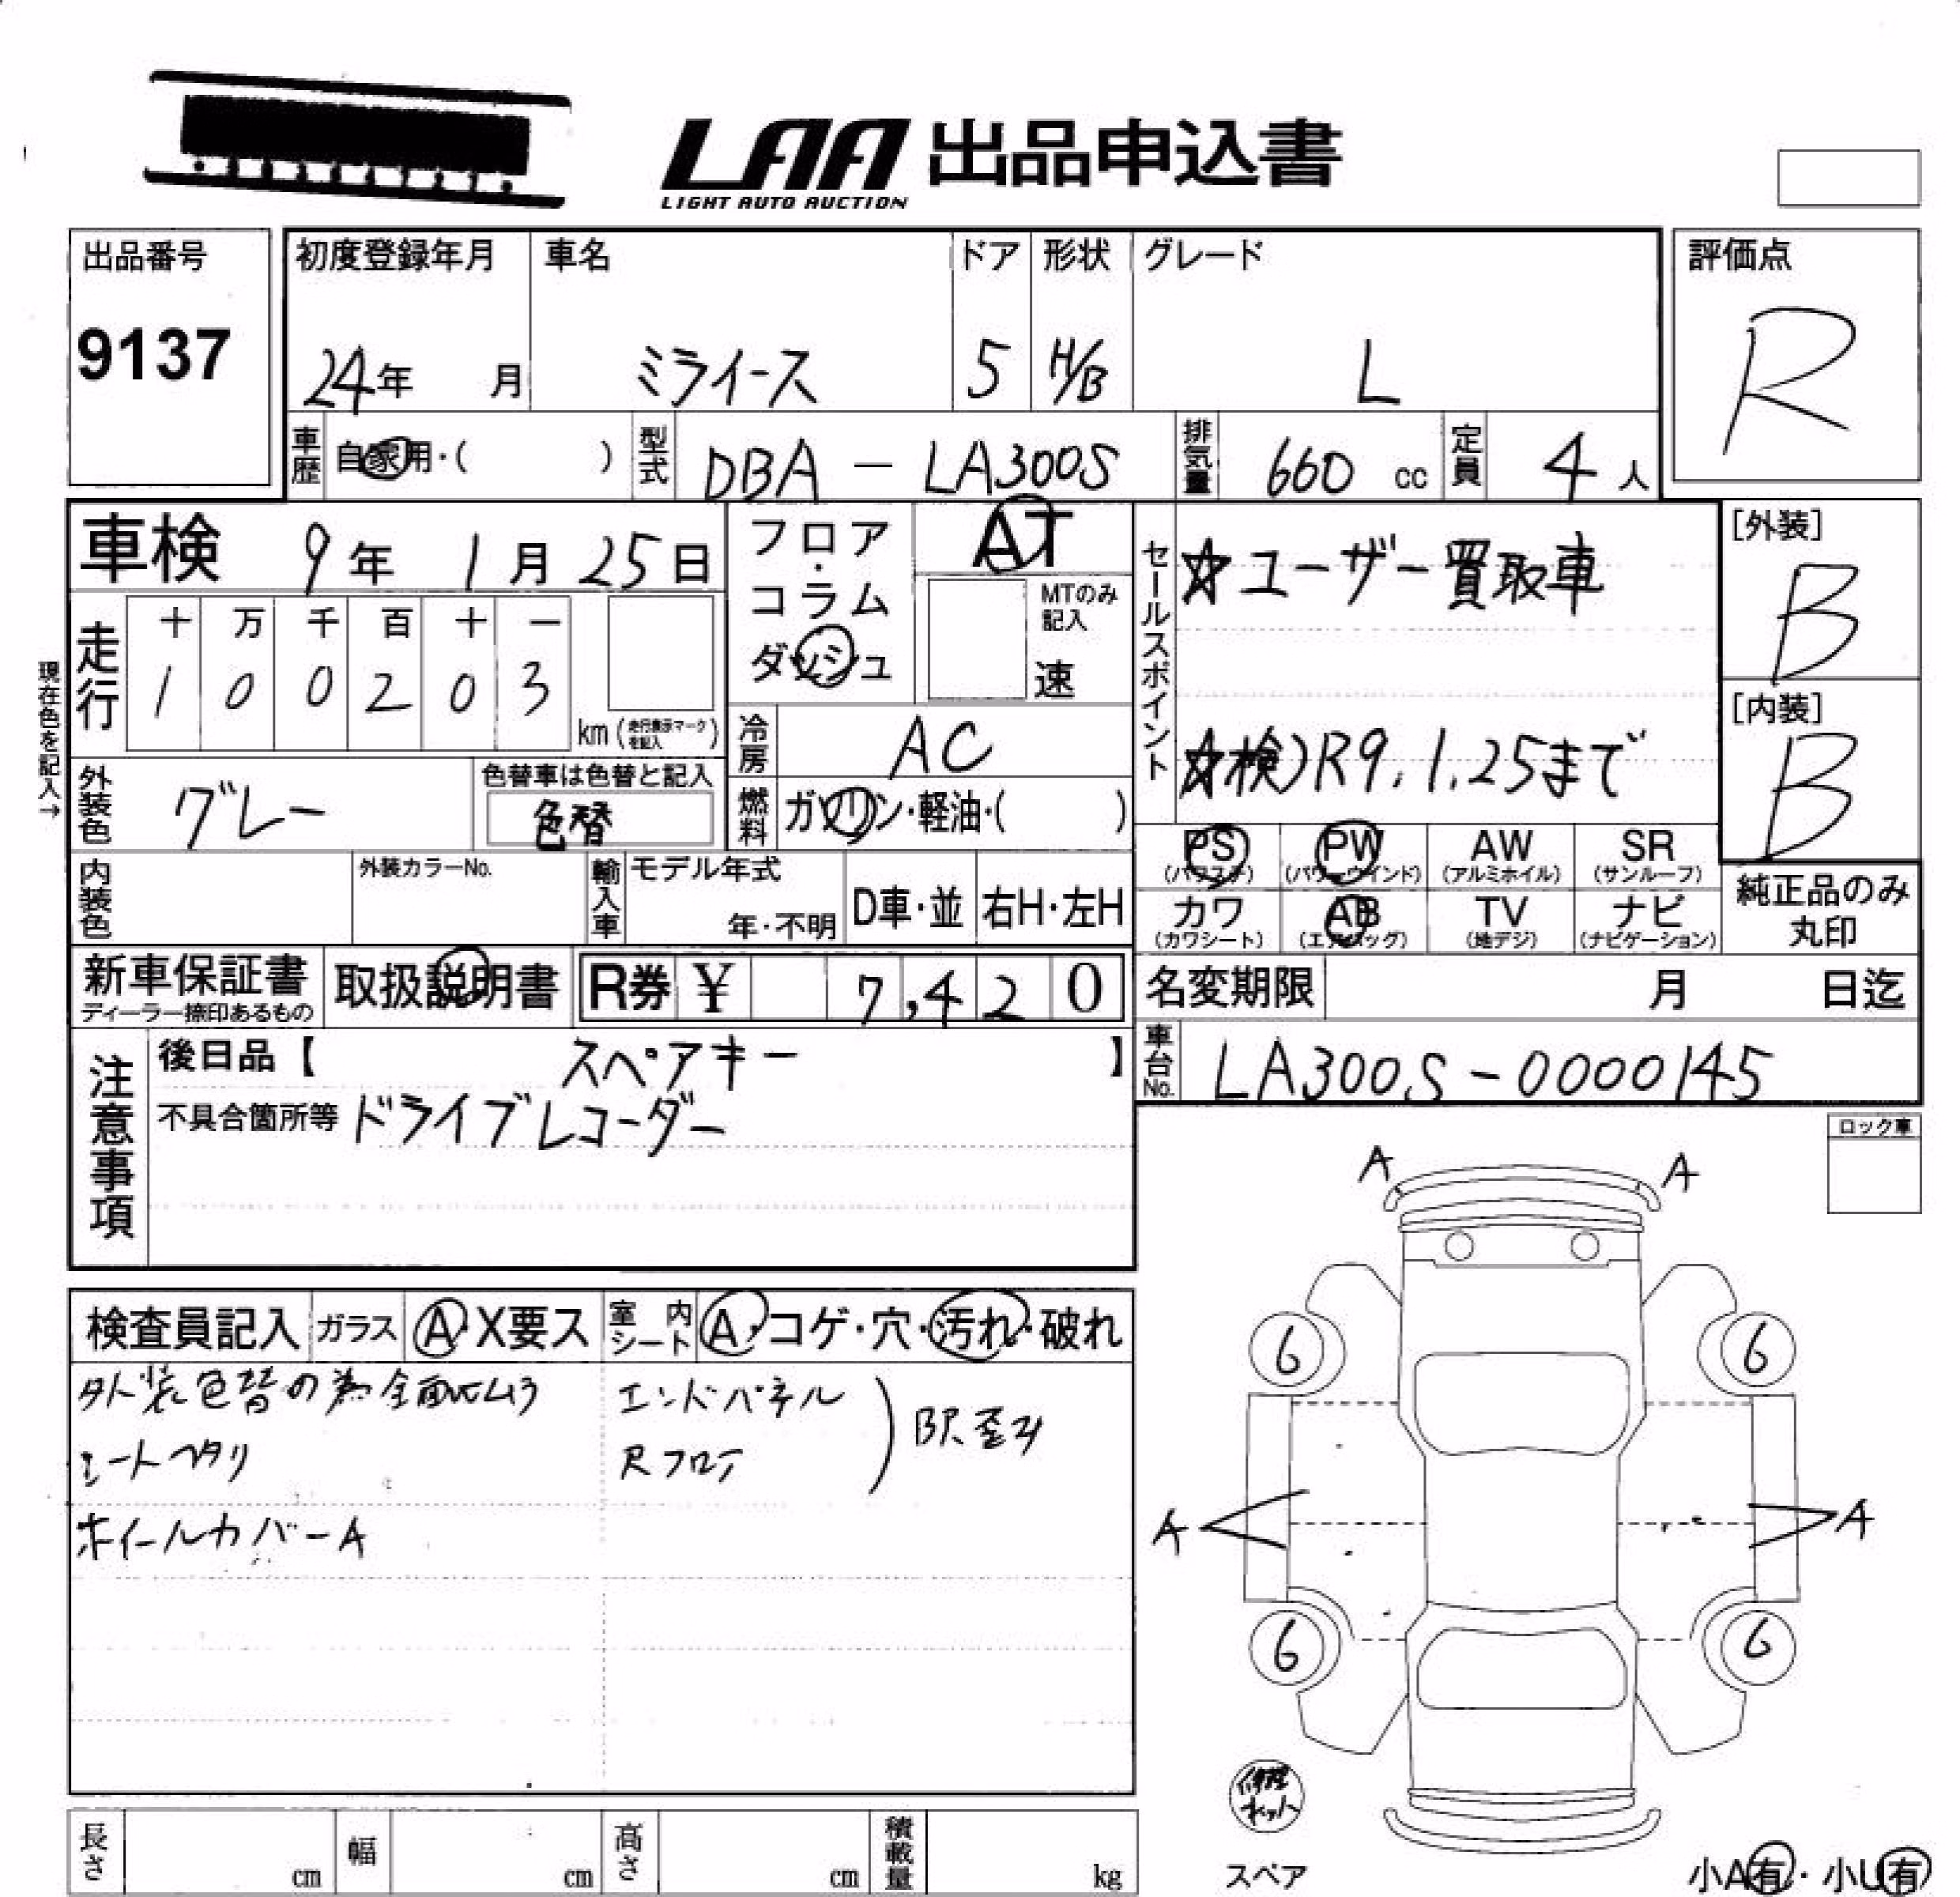 LAA 出品申込書
LIGHT AUTO AUCTION
出品番号 初度登録年月 車名 ドア 形状 グレード 評価点
9137 24年 月 ミライース 5 H/B L R
車歴 自家用・( ) 型式 DBA - LA300S 排気量 660 cc 定員 4 人
車検 9年 1月 25日
フロア・コラム ダッシュ
AT
MTのみ記入
速
セールスポイント
☆ユーザー買取車
☆検)R9.1.25まで
[外装]
B
[内装]
B
現在色を記入→
走行 十 万 千 百 十 一
1 0 0 2 0 3 km(走行表示マークを記入)
冷房 AC
外装色 グレー 色替車は色替と記入
色替
燃料 ガソリン・軽油・( )
PS (パワステ) PW (パワーウインド) AW (アルミホイル) SR (サンルーフ)
カワ (カワシート) AB (エアバッグ) TV (地デジ) ナビ (ナビゲーション)
純正品のみ丸印
内装色 外装カラーNo. 輸入車 モデル年式 年・不明 D車・並 右H・左H
新車保証書 ディーラー捺印あるもの 取扱説明書 R券 ¥ 7,420
名変期限 月 日迄
車台No. LA300S-0000145
注意事項
後日品【 スペアキー 】
不具合箇所等 ドライブレコーダー
ロック車
検査員記入 ガラス A・X要ス 室内シート A・コゲ・穴・汚れ・破れ
外装色替の為全面ムラ エンドパネル
シートヘタリ Rフロア
歪み
ホイールカバーA
A A
6 6
A A
6 6
修理キット
スペア
小A有・小U有
長さ cm 幅 cm 高さ cm 積載量 kg